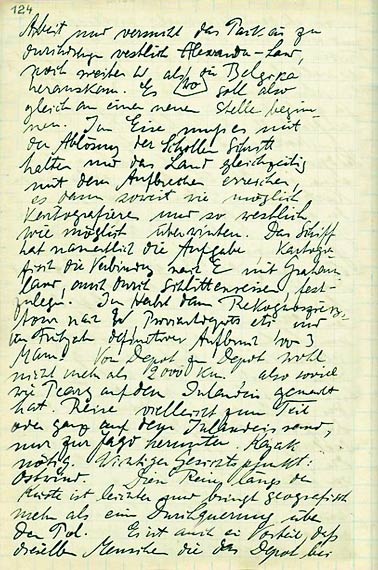 124
Arbeit und vermeht das Packeis zu
durchdringen westlich Alexander-Land,
noch weiter W, als die Belgica
herauskam. Es (wo) soll also
gleich an einer neuen Stelle begin-
nen. Im Eise muss es mit
der Ablösung der Schollen Schritt
halten und das Land gleichzeitig
mit dem Aufbrechen erreichen,
es dann soweit wie möglich
kartografieren und so westlich
wie möglich überwintern. Das Schiff
hat namentlich die Aufgabe, kartogra-
fisch die Verbindung nach E mit Graham
land, auch durch Schlittenreisen fest-
zulegen. Im Herbst dann Rekognoszierungs-
tour nach Proviantdepots etc und
im Frühjahr definitiver Aufbruch von 3
Mann. Von Depot zu Depot wohl
nicht mehr als 2000 Km. also soviel
wie Peary auf dem Inlandeis gemacht
hat. Reise vielleicht zum Teil
oder ganz auf dem Inlandeisrand,
nur zur Jagd herunter. Kajak
nötig. Wichtiger Gesichtspunkt:
Ostwind. Die Reise längs der
Küste ist leichter und bringt geografisch
mehr als eine Durchquerung über
den Pol. Es ist auch ein Vorteil, dass
dieselben Menschen die das Depot bei